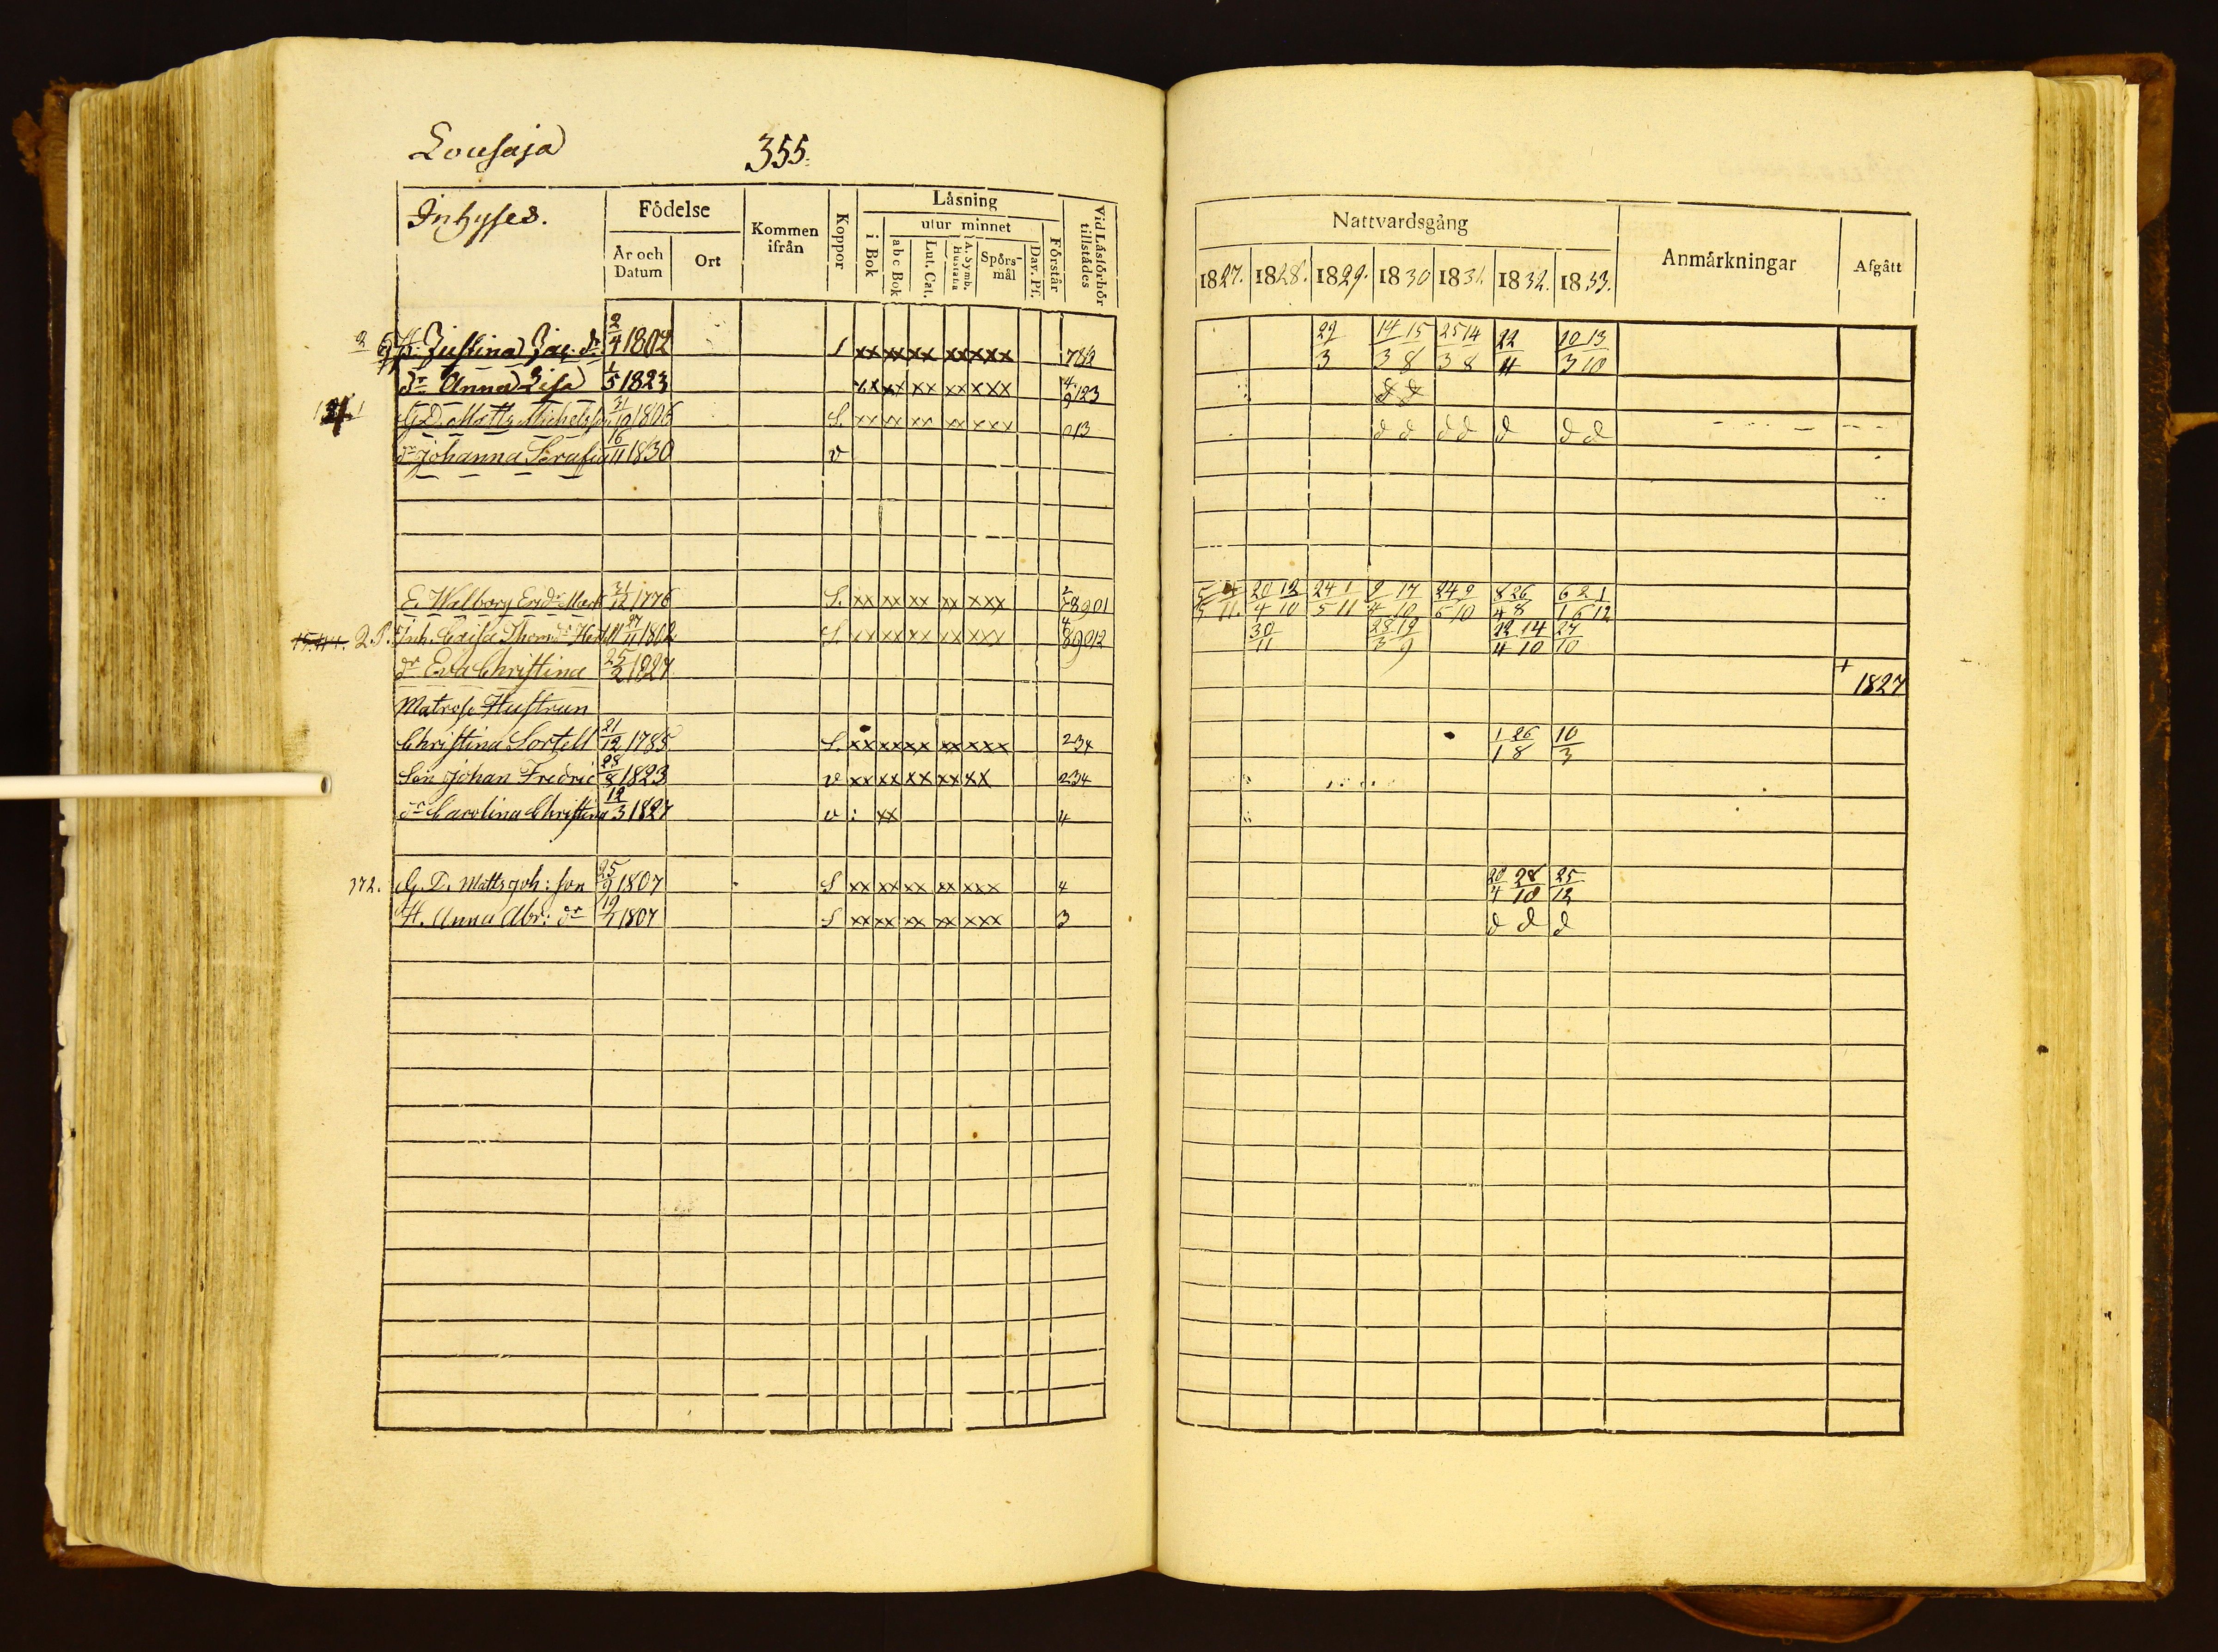 Lousaja 355.
Inhyses. Födelse Kommen ifrån Koppor Läsning Vid Läsförhör tillstädes Nattvardsgång Anmärkningar Afgått
År och Datum Ort i Bok utur minnet Förstår
abc Bok Lut. Cat. A. Symb. Hustafla Spörsmål Dav. Ps.
1827. 1828. 1829. 1830 1831. 1832. 1833.
H: Justina Jac: dr 2/4 1802 xx xx xx xx xxx 7812 29/3 14/3 15/8 25/3 14/8 22/4 20/3 13/10
dr Anna Lisa 1/5 1823 xx xx xx xx xxx 123
G D. Matts Michelsson 31/10 1806 S. xx xx xx xx xxx 013 d d d d d d d
dr Johanna Serafia 16/11 1830 v
E. Walborg Ericdr 31/12 1776 S. xx xx xx xx xxx 8901 20/4 12/10 24/5 1/11 9/4 17/10 24/5 9/10 8/4 26/8 6/1 2/6 1/12
Inh. Caisa Thom: dr 27/11 1802 S. xx xx xx xx xxx 89012 30/11 28/3 19/9 22/4 14/10 27/10
dr Eva Christina 25/2 1827 + 1827
Matrose Hustrun
Christina Sortell 21/12 1785 S. xx xx xx xx xxx 234 1/1 26/8 10/3
Son Johan Fredric 28/8 1823 v xx xx xx xx xx 234
dr Carolina Christina 12/3 1827 v xx 4
372. G. D. Matts Joh: son 25/9 1807 S xx xx xx xx xxx 4 20/4 28/10 25/12
H. Anna Abr: dr 1807 S xx xx xx xx xxx 3 d d d